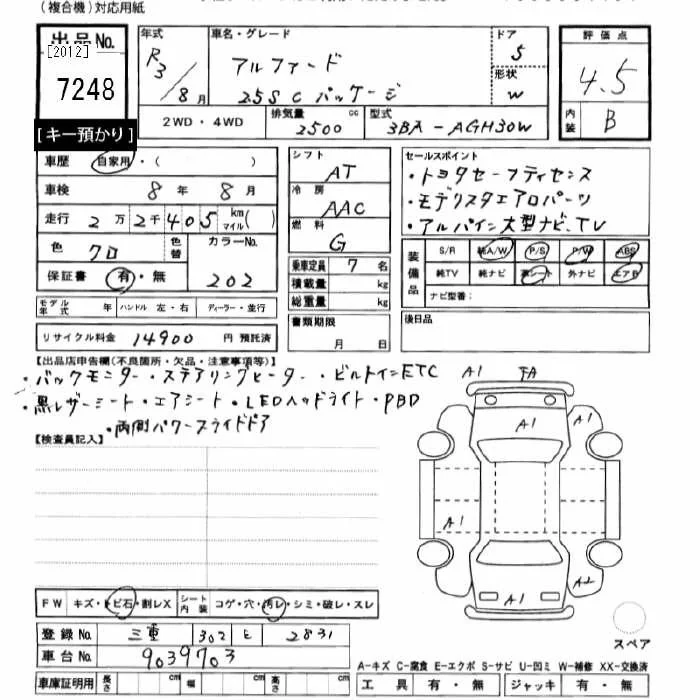 (複合機)対応用紙
出品No. [2012] 7248
[キー預かり]
年式 R3/8月
車名・グレード アルファード 2.5S Cパッケージ
ドア 5
形状 W
評価点 4.5
内装 B
2WD・4WD 排気量 2500 cc 型式 3BA-AGH30W
車歴 自家用・( )
車検 8年 8月
走行 2万2千405 km マイル( )
色 クロ 色替 カラーNo. 202
保証書 有・無
モデル年式 年 ハンドル 左・右 ディーラー・並行
リサイクル料金 14900 円 預託済
シフト AT
冷房 AAC
燃料 G
乗車定員 7 名
積載量 kg
総重量 kg
書類期限 月 日
セールスポイント
・トヨタセーフティセンス
・モデリスタエアロパーツ
・アルパイン大型ナビ、TV
装備品 S/R 純A/W P/S P/W ABS
純TV 純ナビ 革シート 外ナビ エアB
ナビ型番:
後日品
【出品店申告欄(不良箇所・欠品・注意事項等)】
・バックモニター・ステアリングヒーター・ビルトインETC
・黒レザーシート・エアシート・LEDヘッドライト・PBD
・両側パワースライドドア
【検査員記入】
A1 FA
A1 A1
A1
A1 A2
スペア
FW キズ・トビ石・割レX シート内装 コゲ・穴・汚レ・シミ・破レ・スレ
登録No. 三重 302 と 2831
車台No. 9039703
車庫証明用 長さ cm 幅 cm 高さ cm
A-キズ C-腐食 E-エクボ S-サビ U-凹ミ W-補修 XX-交換済
工具 有・無 ジャッキ 有・無